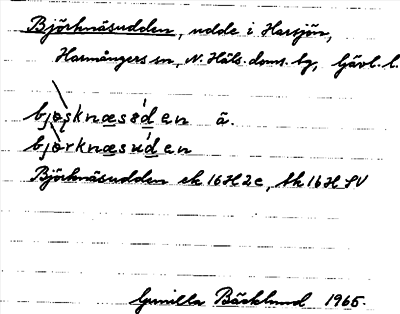 Björknäsudden, udde i Harsjön,
Harmångers sn, N. Häls. doms. bg, Gävl. l.
bjosknæsøden ä.
bjorknæsuden
Björknäsudden ek 16H2e, tk 16H SV
Gunilla Bäcklund 1965.